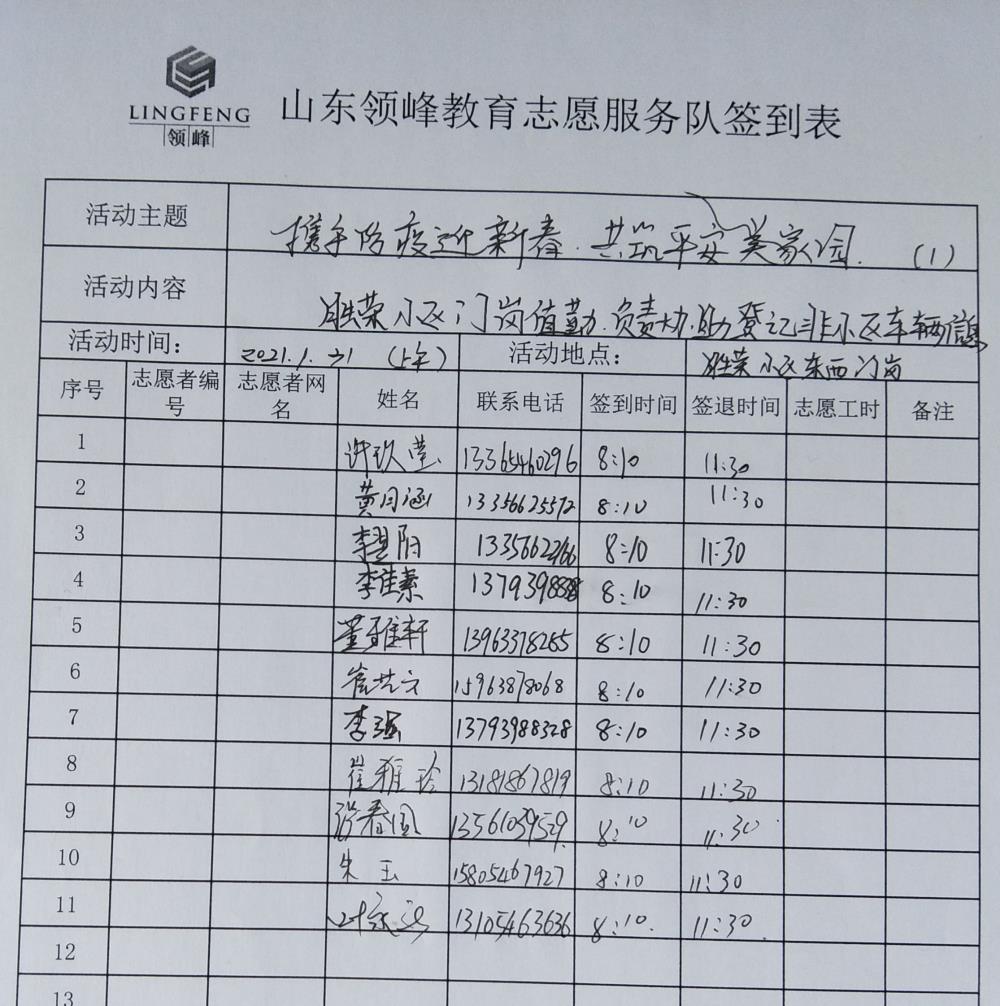 LINGFENG
领峰
山东领峰教育志愿服务队签到表
活动主题 携手防疫迎新春.共筑平安美家园. (1)
活动内容 胜荣小区门岗值勤.负责协助登记非小区车辆信息
活动时间: 2021.1.31 (上午) 活动地点: 胜荣小区东西门岗
序号 志愿者编号 志愿者网名 姓名 联系电话 签到时间 签退时间 志愿工时 备注
1 许玖莹 13365460296 8:10 11:30
2 黄月涵 13356625572 8:10 11:30
3 李翌阳 8:10 11:30
4 李佳蓁 8:10 11:30
5 董雅轩 13963378255 8:10 11:30
6 崔芸文 15963878068 8:10 11:30
7 李强 13793988328 8:10 11:30
8 崔雅玲 13181867819 8:10 11:30
9 张春风 13561039529 8:10 11:30
10 朱玉 15805467927 8:10 11:30
11 13105463636 8:10. 11:30.
12
13